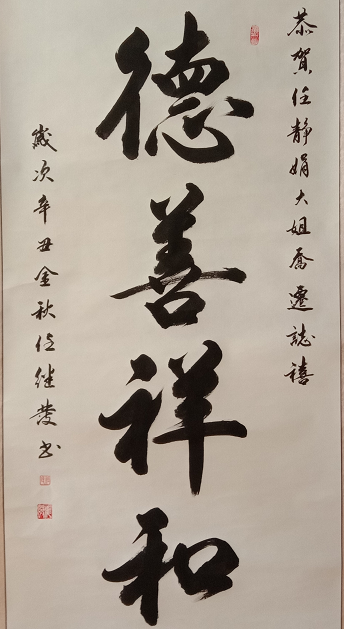 恭贺任静娟大姐乔迁誌禧
德善祥和
岁次辛丑金秋任继发书